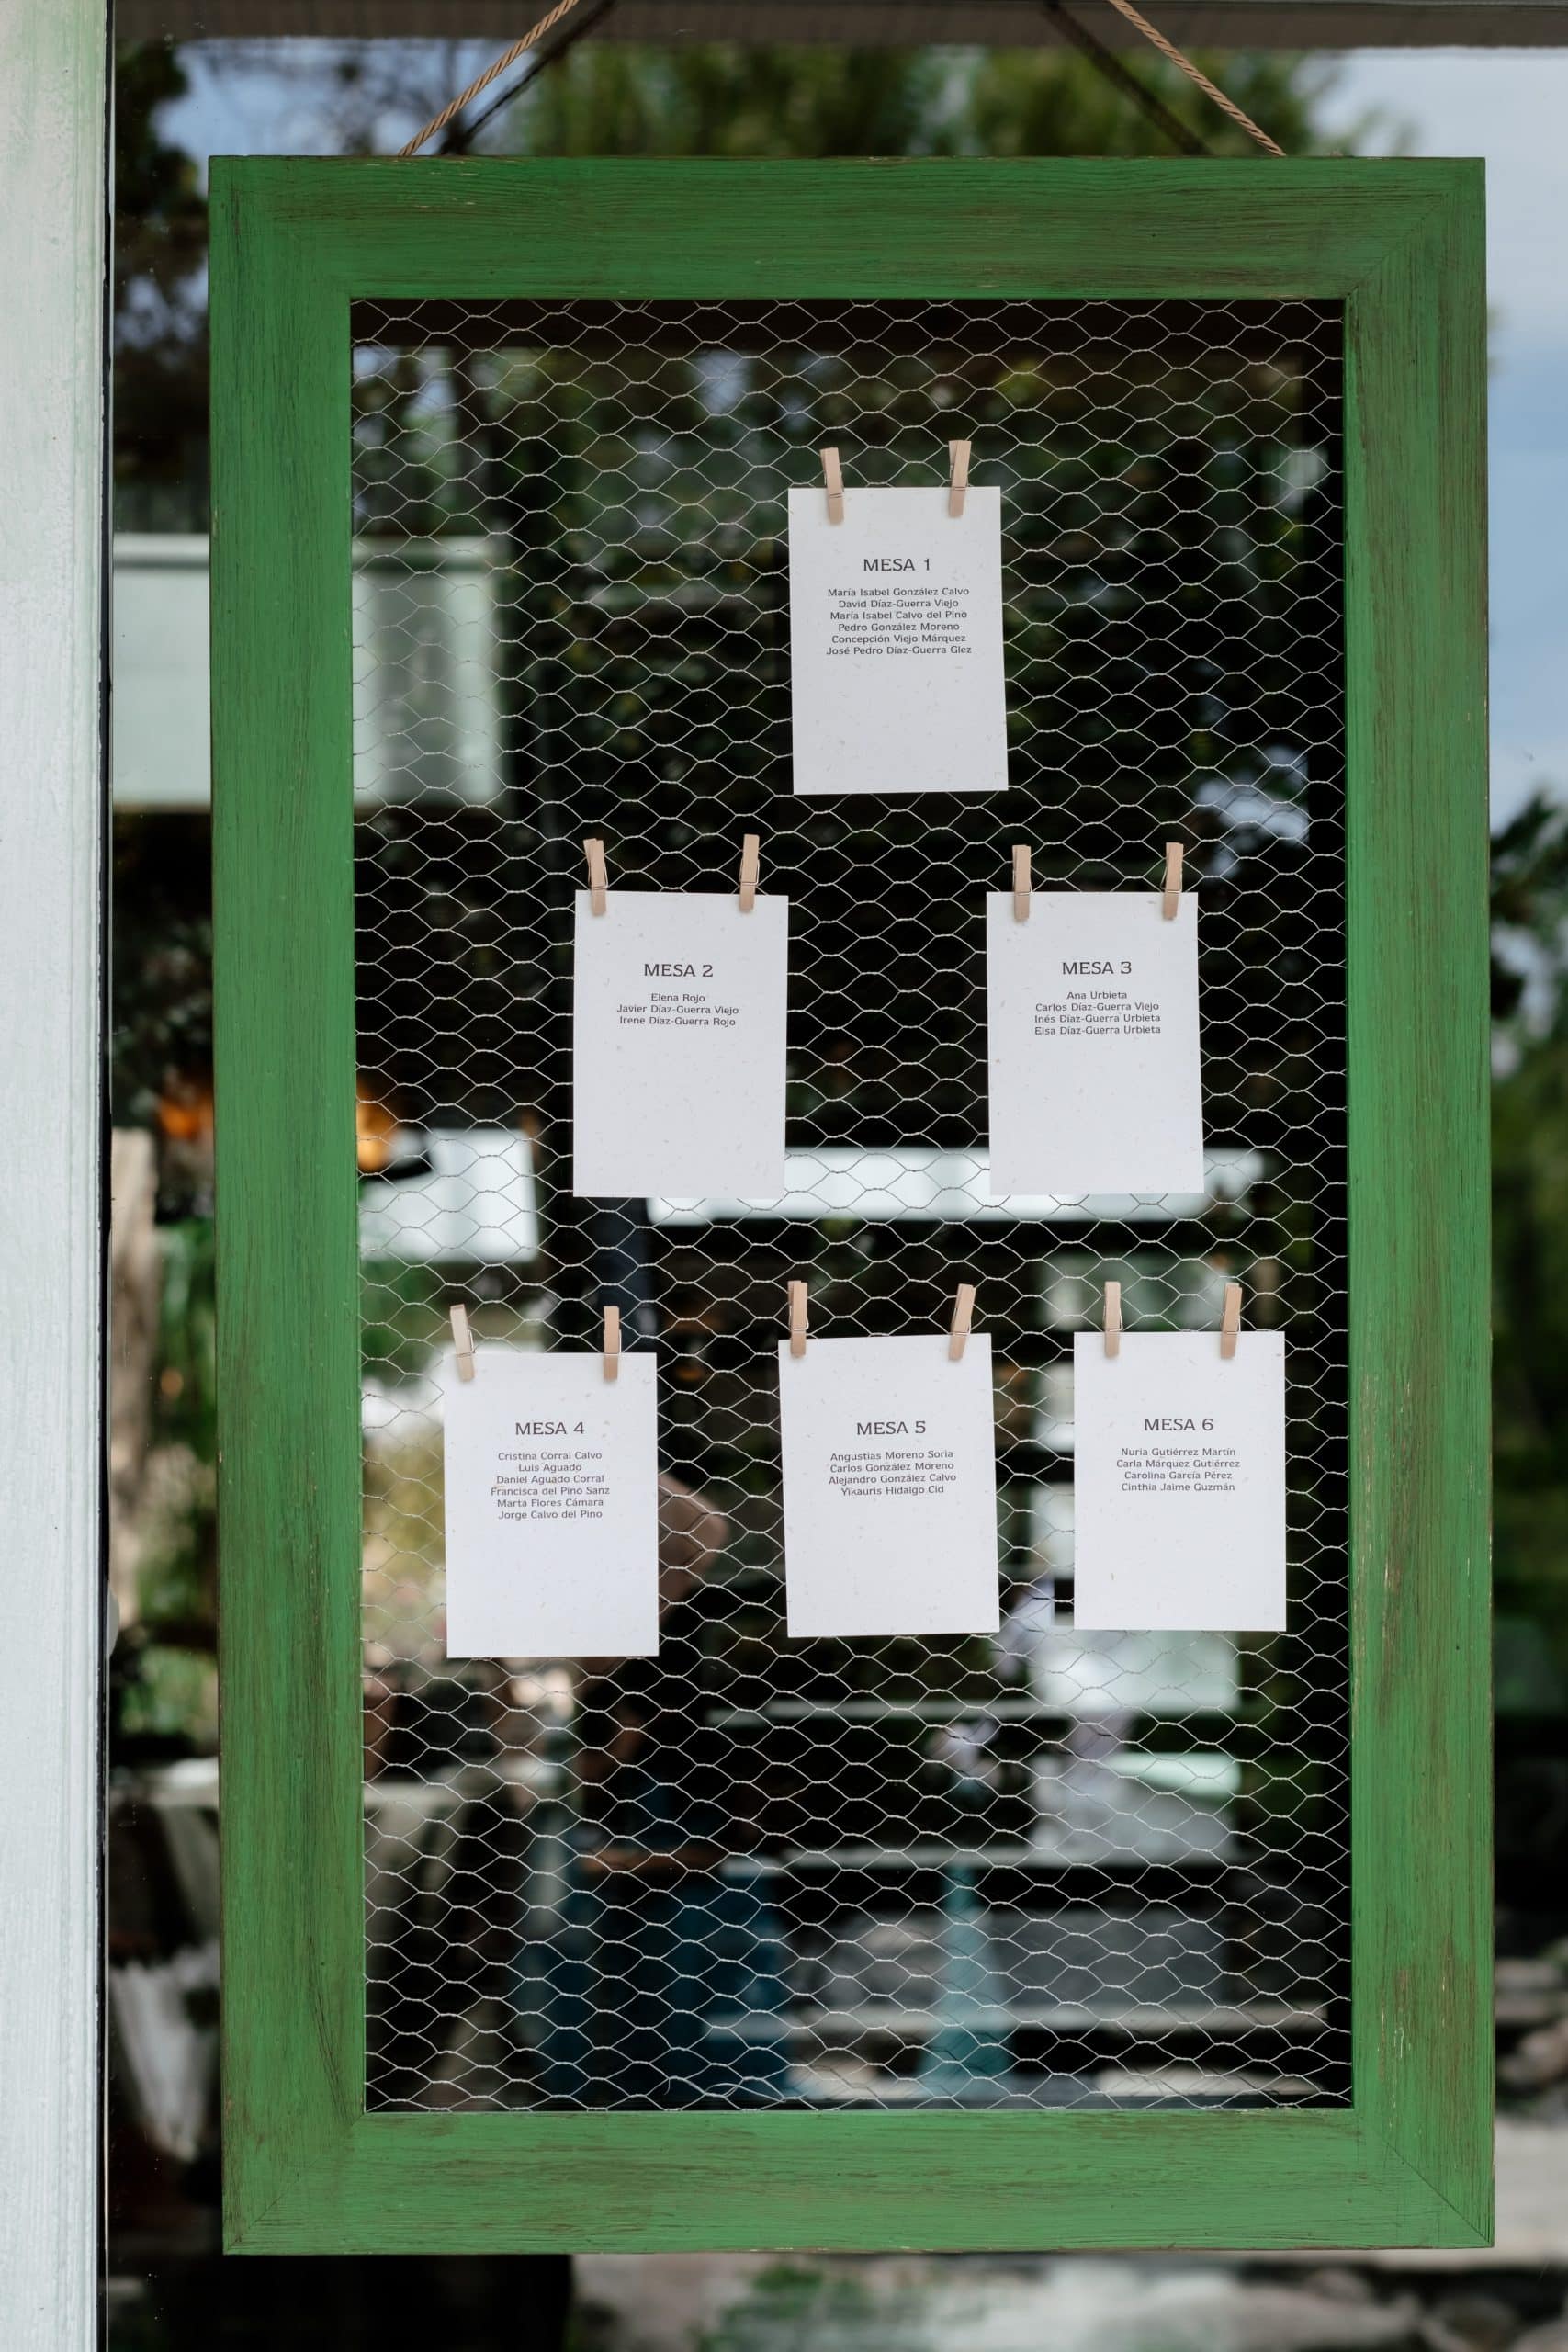 MESA 1
María Isabel González Calvo
David Díaz-Guerra Viejo
María Isabel Calvo del Pino
Pedro González Moreno
Concepción Viejo Márquez
José Pedro Díaz-Guerra Glez
MESA 2
Elena Rojo
Javier Díaz-Guerra Viejo
Irene Díaz-Guerra Rojo
MESA 3
Ana Urbieta
Carlos Díaz-Guerra Viejo
Inés Díaz-Guerra Urbieta
Elsa Díaz-Guerra Urbieta
MESA 4
Cristina Corral Calvo
Luis Aguado
Daniel Aguado Corral
Francisca del Pino Sanz
Marta Flores Cámara
Jorge Calvo del Pino
MESA 5
Angustias Moreno Soria
Carlos González Moreno
Alejandro González Calvo
Yikauris Hidalgo Cid
MESA 6
Nuria Gutiérrez Martín
Carla Márquez Gutiérrez
Carolina García Pérez
Cinthia Jaime Guzmán